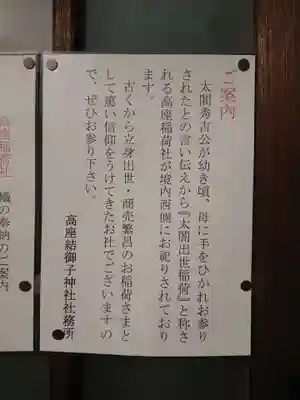 ご案内
太閤秀吉公が幼き頃、母に手をひかれお参り
されたとの言い伝えから『太閤出世稲荷』と称さ
れる高座稲荷社が境内西側にお祀りされており
ます。
古くから立身出世・商売繁昌のお稲荷さまと
して篤い信仰をうけてきたお社でございますの
で、ぜひお参り下さい。
高座結御子神社社務所
高座稲荷社
幟の奉納のご案内